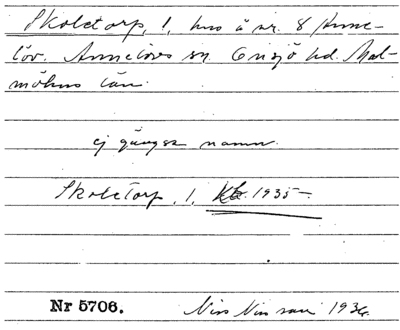 Skoletorp, 1, hus å nr. 8 Anne-
löv. Annelövs sn. Onsjö hd. Mal-
möhus län.
ej gängse namn.
Skoletorp, 1, Kb. 1935-
Nr 5706. Nils Nilsson 1936.